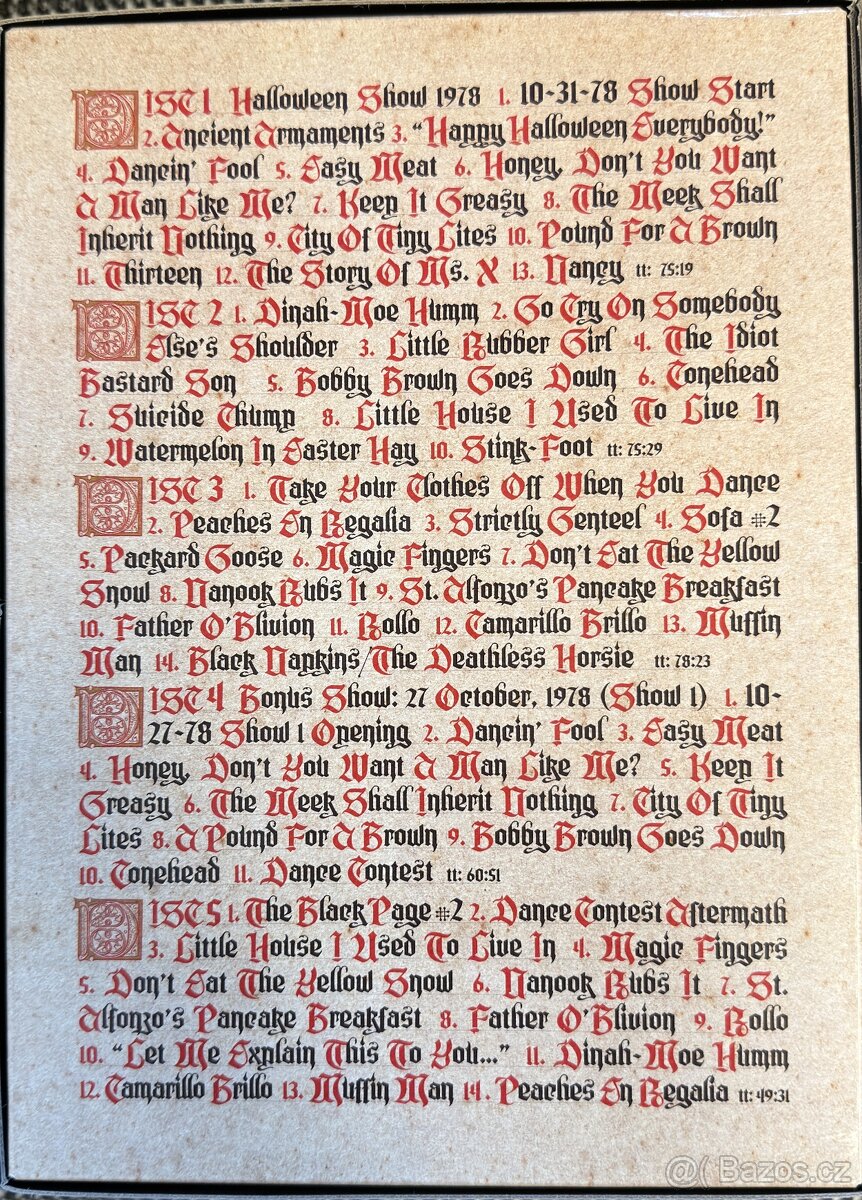 DISC 1 Halloween Show 1978 1. 10-31-78 Show Start
2. Ancient Armaments 3. "Happy Halloween Everybody!"
4. Dancin' Fool 5. Easy Meat 6. Honey, Don't You Want
A Man Like Me? 7. Keep It Greasy 8. The Meek Shall
Inherit Nothing 9. City Of Tiny Lites 10. Pound For A Brown
11. Thirteen 12. The Story Of Ms. X 13. Nancy tt: 75:19
DISC 2 1. Dinah-Moe Humm 2. Go Try On Somebody
Else's Shoulder 3. Little Rubber Girl 4. The Idiot
Bastard Son 5. Bobby Brown Goes Down 6. Conehead
7. Suicide Chump 8. Little House I Used To Live In
9. Watermelon In Easter Hay 10. Stink-Foot tt: 75:29
DISC 3 1. Take Your Clothes Off When You Dance
2. Peaches En Regalia 3. Strictly Genteel 4. Sofa #2
5. Packard Goose 6. Magic Fingers 7. Don't Eat The Yellow
Snow 8. Nanook Rubs It 9. St. Alfonzo's Pancake Breakfast
10. Father O'Blivion 11. Rollo 12. Camarillo Brillo 13. Muffin
Man 14. Black Napkins/The Deathless Horsie tt: 78:23
DISC 4 Bonus Show: 27 October, 1978 (Show 1) 1. 10-
27-78 Show 1 Opening 2. Dancin' Fool 3. Easy Meat
4. Honey, Don't You Want A Man Like Me? 5. Keep It
Greasy 6. The Meek Shall Inherit Nothing 7. City Of Tiny
Lites 8. A Pound For A Brown 9. Bobby Brown Goes Down
10. Conehead 11. Dance Contest tt: 60:51
DISC 5 1. The Black Page #2 2. Dance Contest Aftermath
3. Little House I Used To Live In 4. Magic Fingers
5. Don't Eat The Yellow Snow 6. Nanook Rubs It 7. St.
Alfonzo's Pancake Breakfast 8. Father O'Blivion 9. Rollo
10. "Let Me Explain This To You..." 11. Dinah-Moe Humm
12. Camarillo Brillo 13. Muffin Man 14. Peaches En Regalia tt: 49:31
@( Bazos.cz